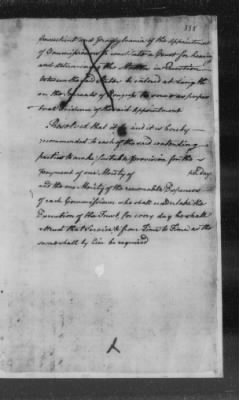 335
Connecticut and Pennsylvania of the Appointment
of Commissioners to constitute a Court for hearing
and determining the Matter in Question
between the said States be entered at length
on the Journals of Congress to remain as perpe-
tual Evidence of the said Appointment
Resolved that it be and it is hereby
recommended to each of the said contending
parties to make suitable Provision for the
Payment of one Moiety of pr Day
and the one Moiety of the reasonable Expences
of each Commissioner who shall undertake the
Execution of the Trust, for every day he shall
attend that Service & from Time to Time as the
same shall by Em be required